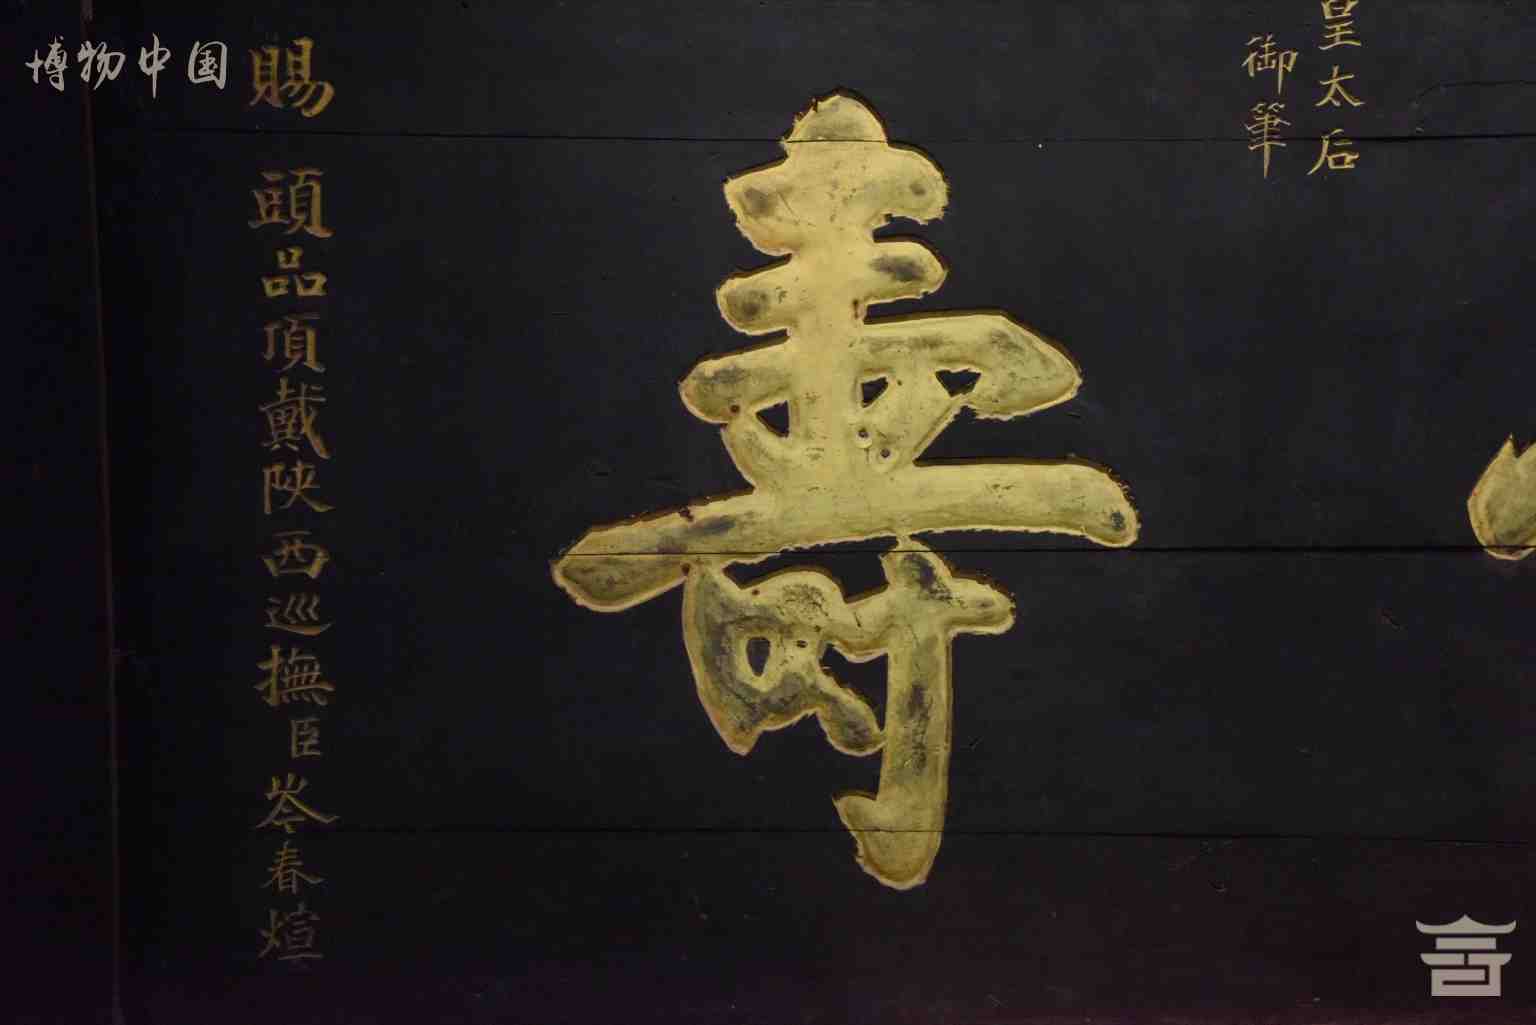 博物中国
皇太后
御筆
壽
賜 頭品頂戴陝西巡撫臣岑春煊